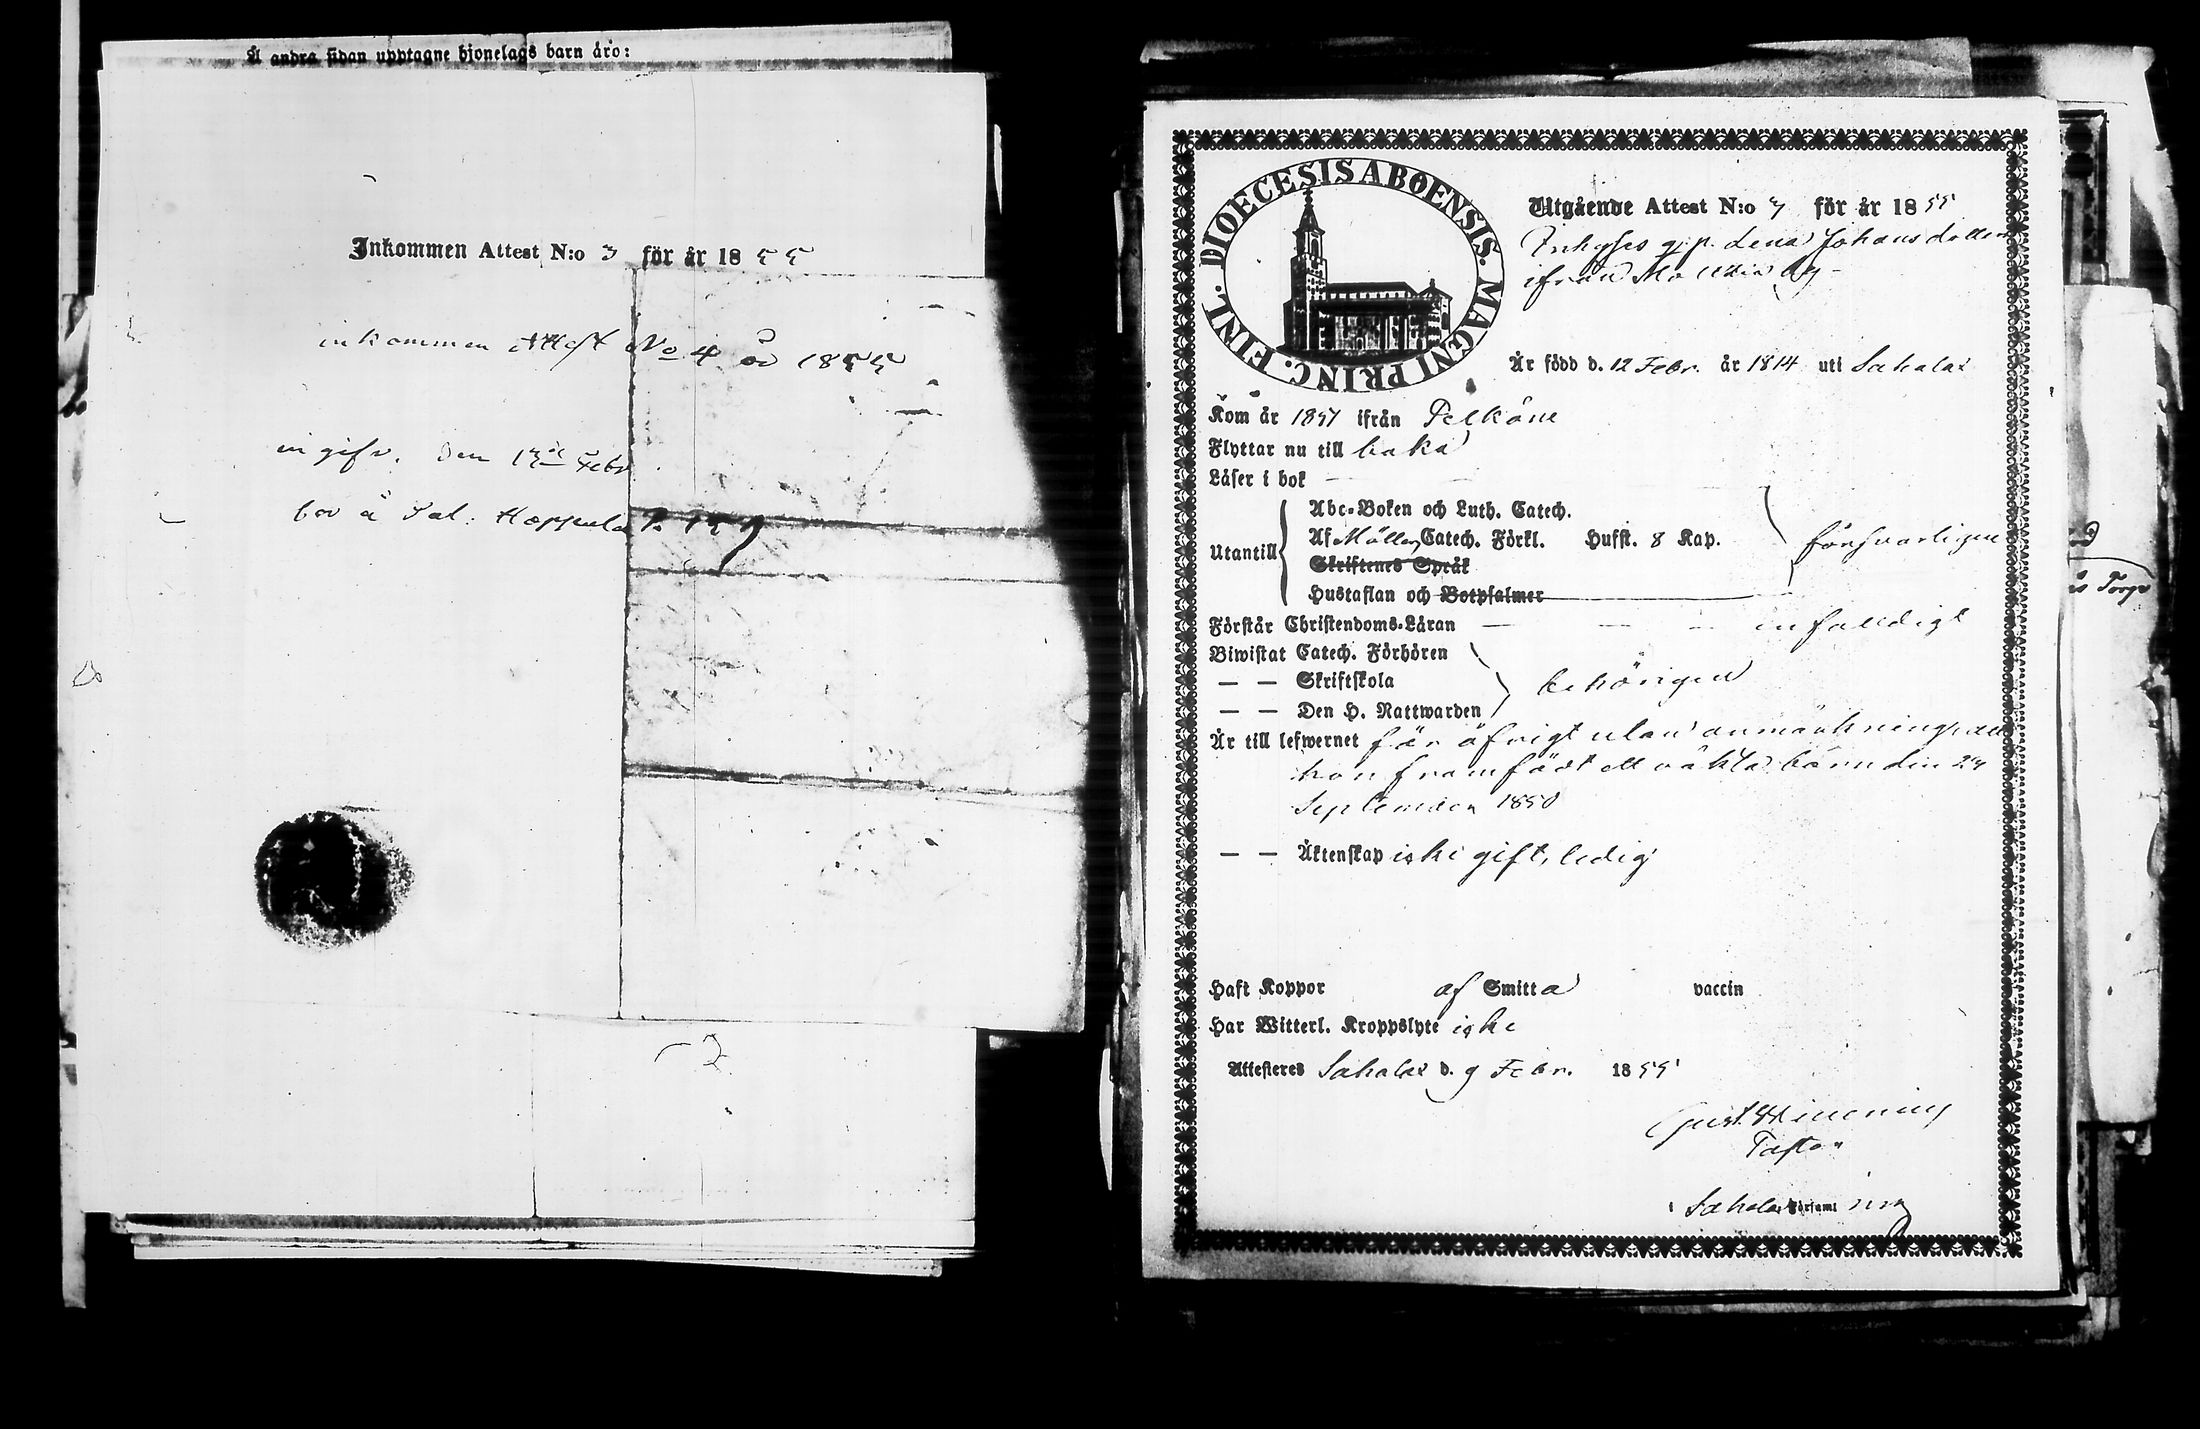 Å andra sidan upptagne hjonelags barn äro:
Inkommen Attest N:o 3 för år 1855
inkommen Attest No 4 år 1855
ingifv. den Febr
bor å Hoppula
DIOECESIS ABOENSIS. MAGNI PRINC. FINL.
Utgående Attest N:o 7 för år 1855
Inhyses Lena Johansdotter
ifrån by
Är född d. 12 Febr. år 1814 uti Sahalax
Kom år 1851 ifrån Pelkäne
Flyttar nu till baka
Läser i bok
Utantill
Abc-Boken och Luth. Catech.
Af Möllers Catech. Förkl. Hufst. 8 Kap.
försvarligen
Skriftenes Språk
Hustaflan och Botpsalmer
Förstår Christendoms-Läran enfaldigt
Biwistat Catech. Förhören
— — Skriftskola
behörigen
— — Den H. Nattwarden
Är till lefwernet för öfrigt utan anmärkning, än
hon framfödt ett oäkta barn den 24
September 1850
— — Äktenskap icke gift, ledig
Haft Koppor af Smitta vaccin
Har Witterl. Kroppslyte icke
Attesteres Sahalax d. 9 Febr. 1855
Gust.
Pastor
i Sahalax Församl
Torp